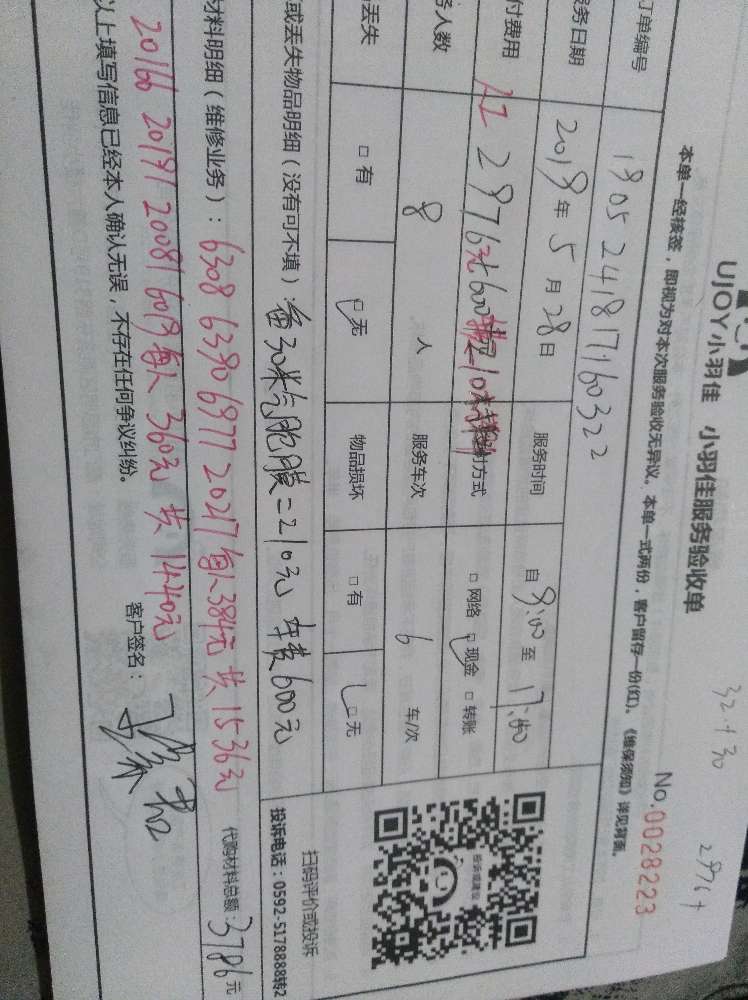 UJOY小羽佳 小羽佳服务验收单
32.+30
2976+
No.0028223
本单一经接签，即视为对本次服务验收无异议。本单一式两份，客户留存一份(红)。《维保须知》详见背面。
订单编号 1905241817160322
服务日期 2019年5月28日 服务时间 自9:00至17:00
付费用 2976元+600 方式 □网络 □现金 □转账
务人数 8 人 服务车次 6 车/次
丢失 □有 □无 物品损坏 □有 □无
扫码评价或投诉
投诉电话：0592-5178888转2
或丢失物品明细（没有可不填）：番30米气胞膜=210元 车费600元
材料明细（维修业务）：6308 6390 6977 20217每人384元 共1536元
代购材料总额：3786元
20166 20191 20081 6019每人360元 共1440元
以上填写信息已经本人确认无误，不存在任何争议纠纷。
客户签名：